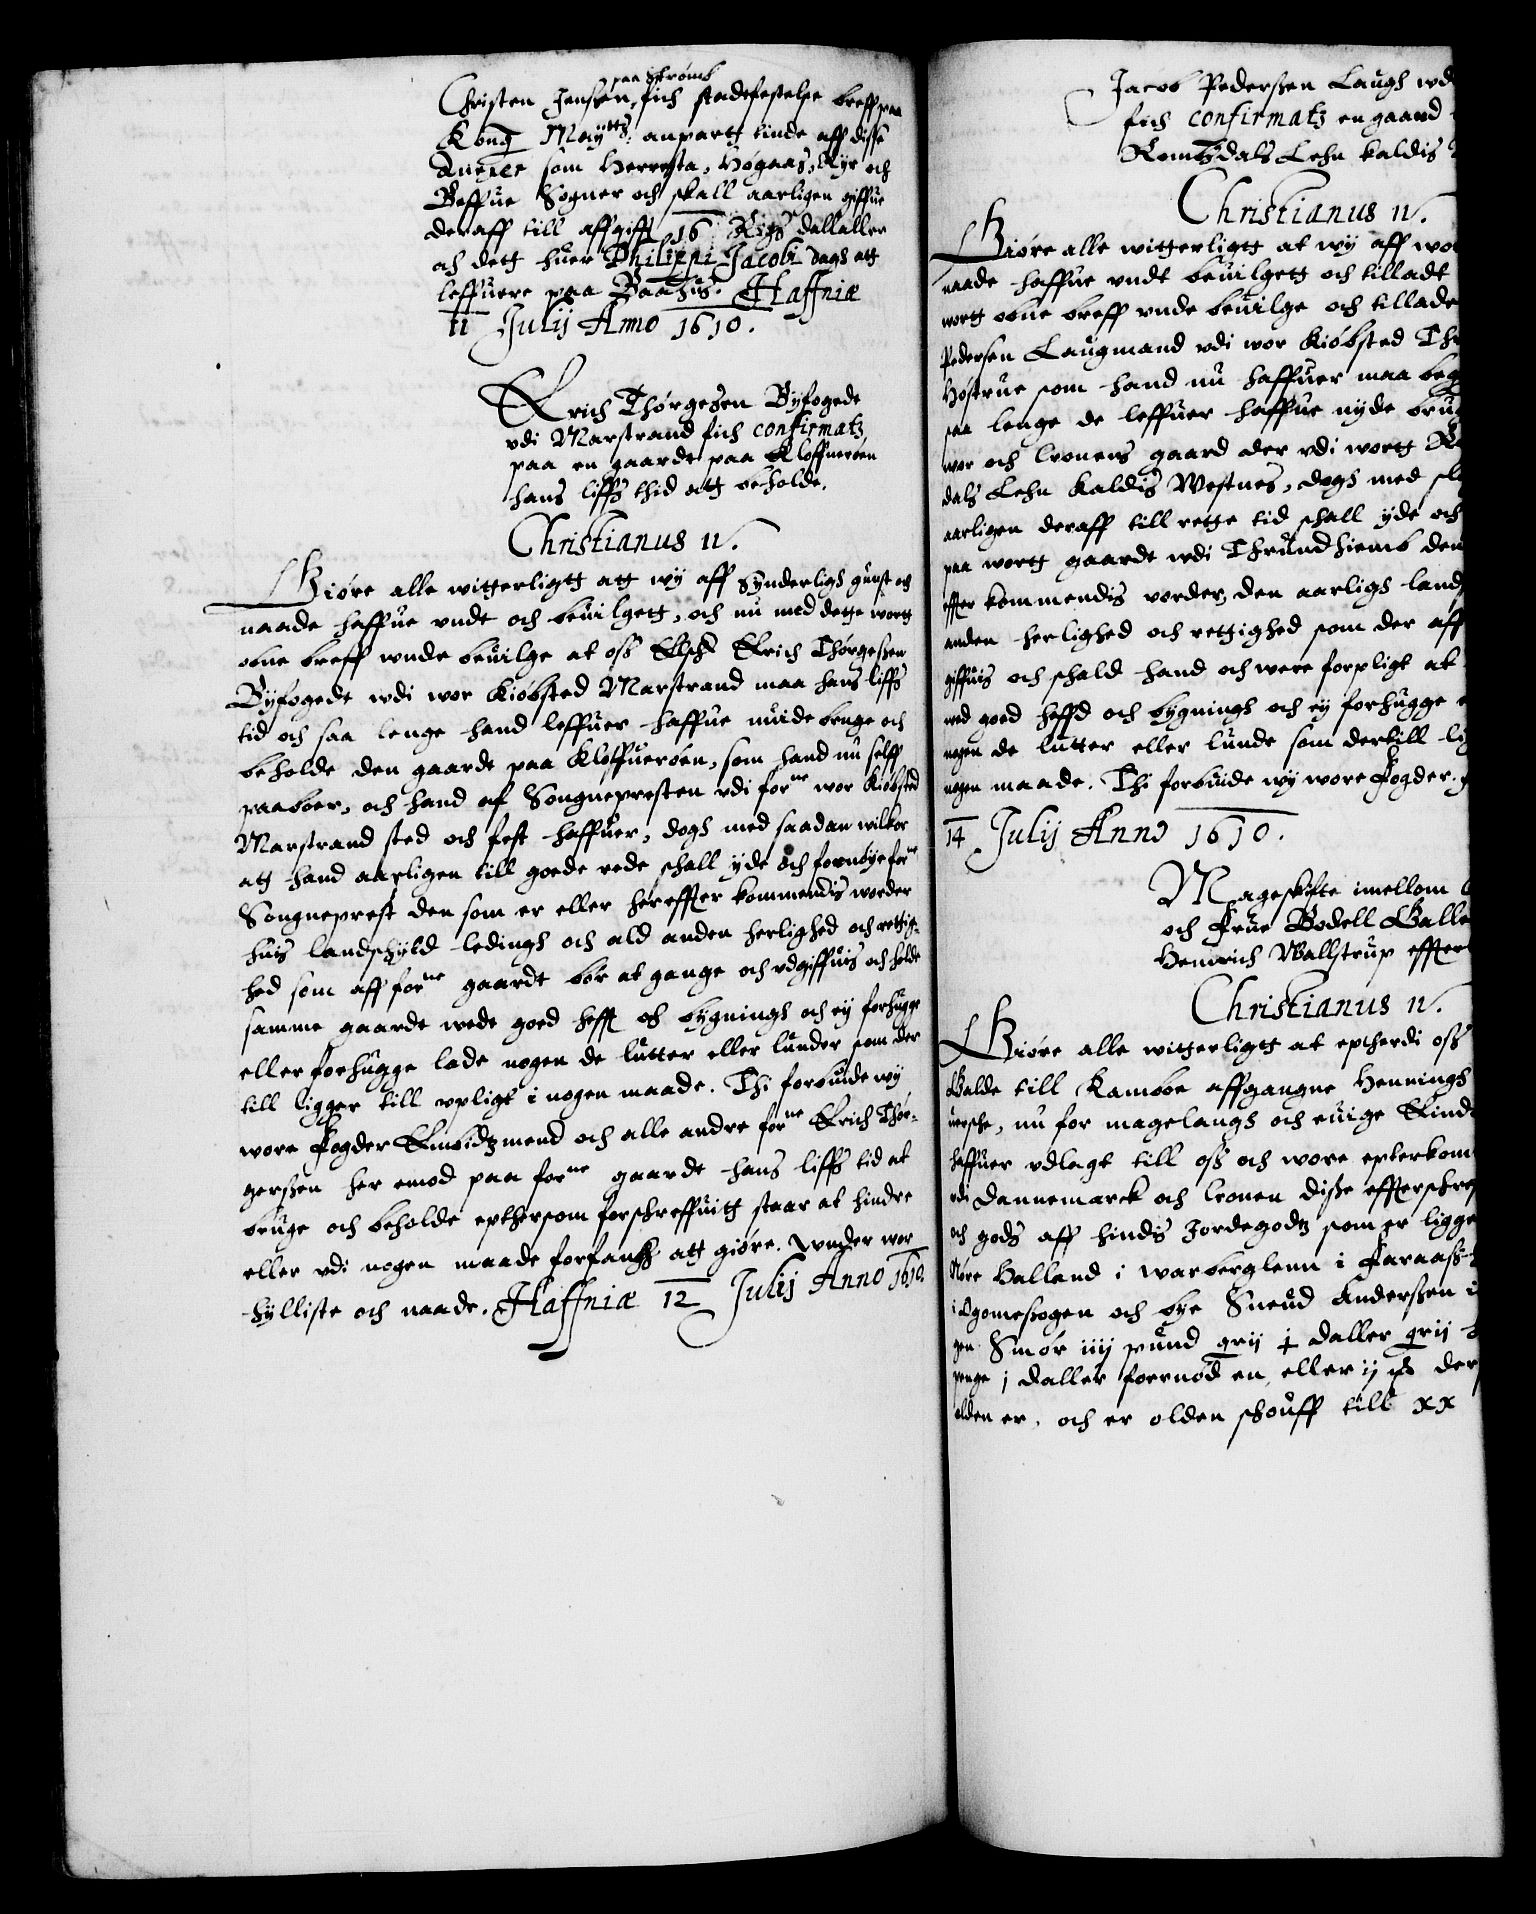 Christen Jenssen paa Strømb fich stadfestelse breff paa
Kong Maytts: anpartt tinde aff disse
som Herresta, Høgaas, Kyr och
Beffue Sogner och skall aarligen giffue
deraff till affgifft 16 Rigs dallaller
och dett huer Philippi Jacobi dags att
leffuere paa Baahus. Haffniæ
11 Julij Anno 1610.
Erich Thørgesen Byfogede
vdi Marstrand fich confirmatz
paa en gaardt paa Kloffuerøen
hans liffs thid att beholde.
Christianus 4.
Giøre alle witterligtt att wy aff synderligh gunst och
naade haffue vndt och beuilgett, och nu med dette wortt
obne breff vnde beuilge at oss Elsch Erich Thørgessen
Byfogedt wdi wor Kiøbsted Marstrand maa hans liffs
tid och saa lenge hand leffuer haffue nuide bruge och
beholde den gaardt paa Kloffuerøen, som hand nu self
paaboer, och hand af Songnepresten vdi forne wor Kiøbsted
Marstrand sted och fest haffuer, dogh med saadan wilkor
att hand aarligen till goede rede schall yde och fornøye forne
Songneprest den som er eller hereffter kommendis worder
huis landschyld ledingh och ald anden herlighed och rettig-
hed som aff forne gaardt bør at gange och vdgiffuis och holde
samme gaardt wede goed hefft och bygningh och ey forhugge
eller forhugge lade nogen de lutter eller lunder som der
till ligger till vpligt i nogen maade. Thi forbiude wy
wore Fogder Embidtzmend och alle andre forne Erich Thør-
gerssen her emod paa forne gaardt hans liffs tid at
bruge och beholde epthersom forschreffuitt staar at hindre
eller vdi nogen maade forfanh att giøre. Vnder wor
hylliste och naade. Haffniæ 12 Julij Anno 1610.
Jacob Pederssen Laugh wd
fich confirmatz en gaard
Romssdals Lehn kaldis
Christianus 4.
Giøre alle witterligtt at wy aff wor
naade haffue vndt beuilgett och tilladt
wortt obne breff vnde beuilge och tillade
Pedersen Laugmand vdi wor Kiøbsted Th
Høstrue som hand nu haffuer maa beg
saa lenge de leffuer haffue nyde brug
wor och Cronens gaard der vdi wortt R
dals Lehn kaldis Westnes, dogh med sl
aarligen deraff till rette tid schall yde och
paa wortt gaardt wdi Thrundhiemb den
effter kommendis vorder, den aarligh land
anden herlighed och rettighed som der aff
giffuis och schald hand och were forpligt at
wed goed heffd och bygningh och ey forhugge
nogen de lutter eller lunde som dertill lig
nogen maade. Thi forbiude wy wore Fogder
14 Julij Anno 1610.
Mageskifte imellom
och Frue Bodell Galle
Henrich Wallstrup effter
Christianus 4.
Giøre alle witterligtt at eptherdi oss
Galde till Kamboe affgangne Henningh
uersche, nu for magelaugh och euige Eind
haffuer vdlagt till oss och wore epterkom
vdi Dannemarck och Cronen disse effterschre
och gods aff hindis Jordegodtz som er ligge
Nøre Halland i warberglenn i Faraass
och bye Suend Anderssen i
Smør iiij pund
penge j daller foernød en, eller ij der
olden er, och er olden schouff till xx